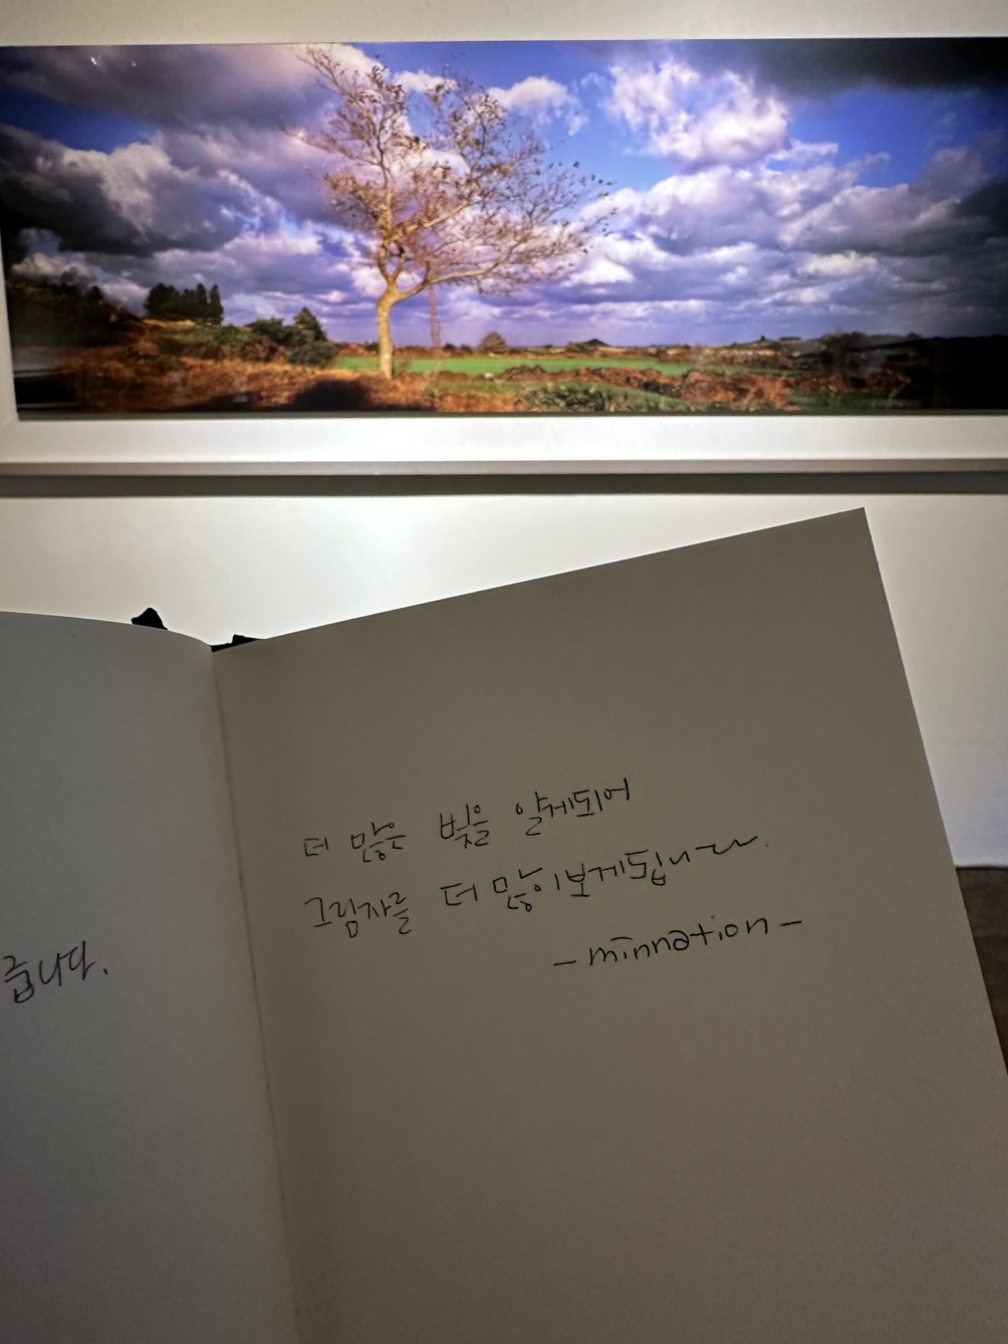 습니다.
더 많은 빛을 알게되어
그림자를 더 많이보게됩니다.
- minnation -